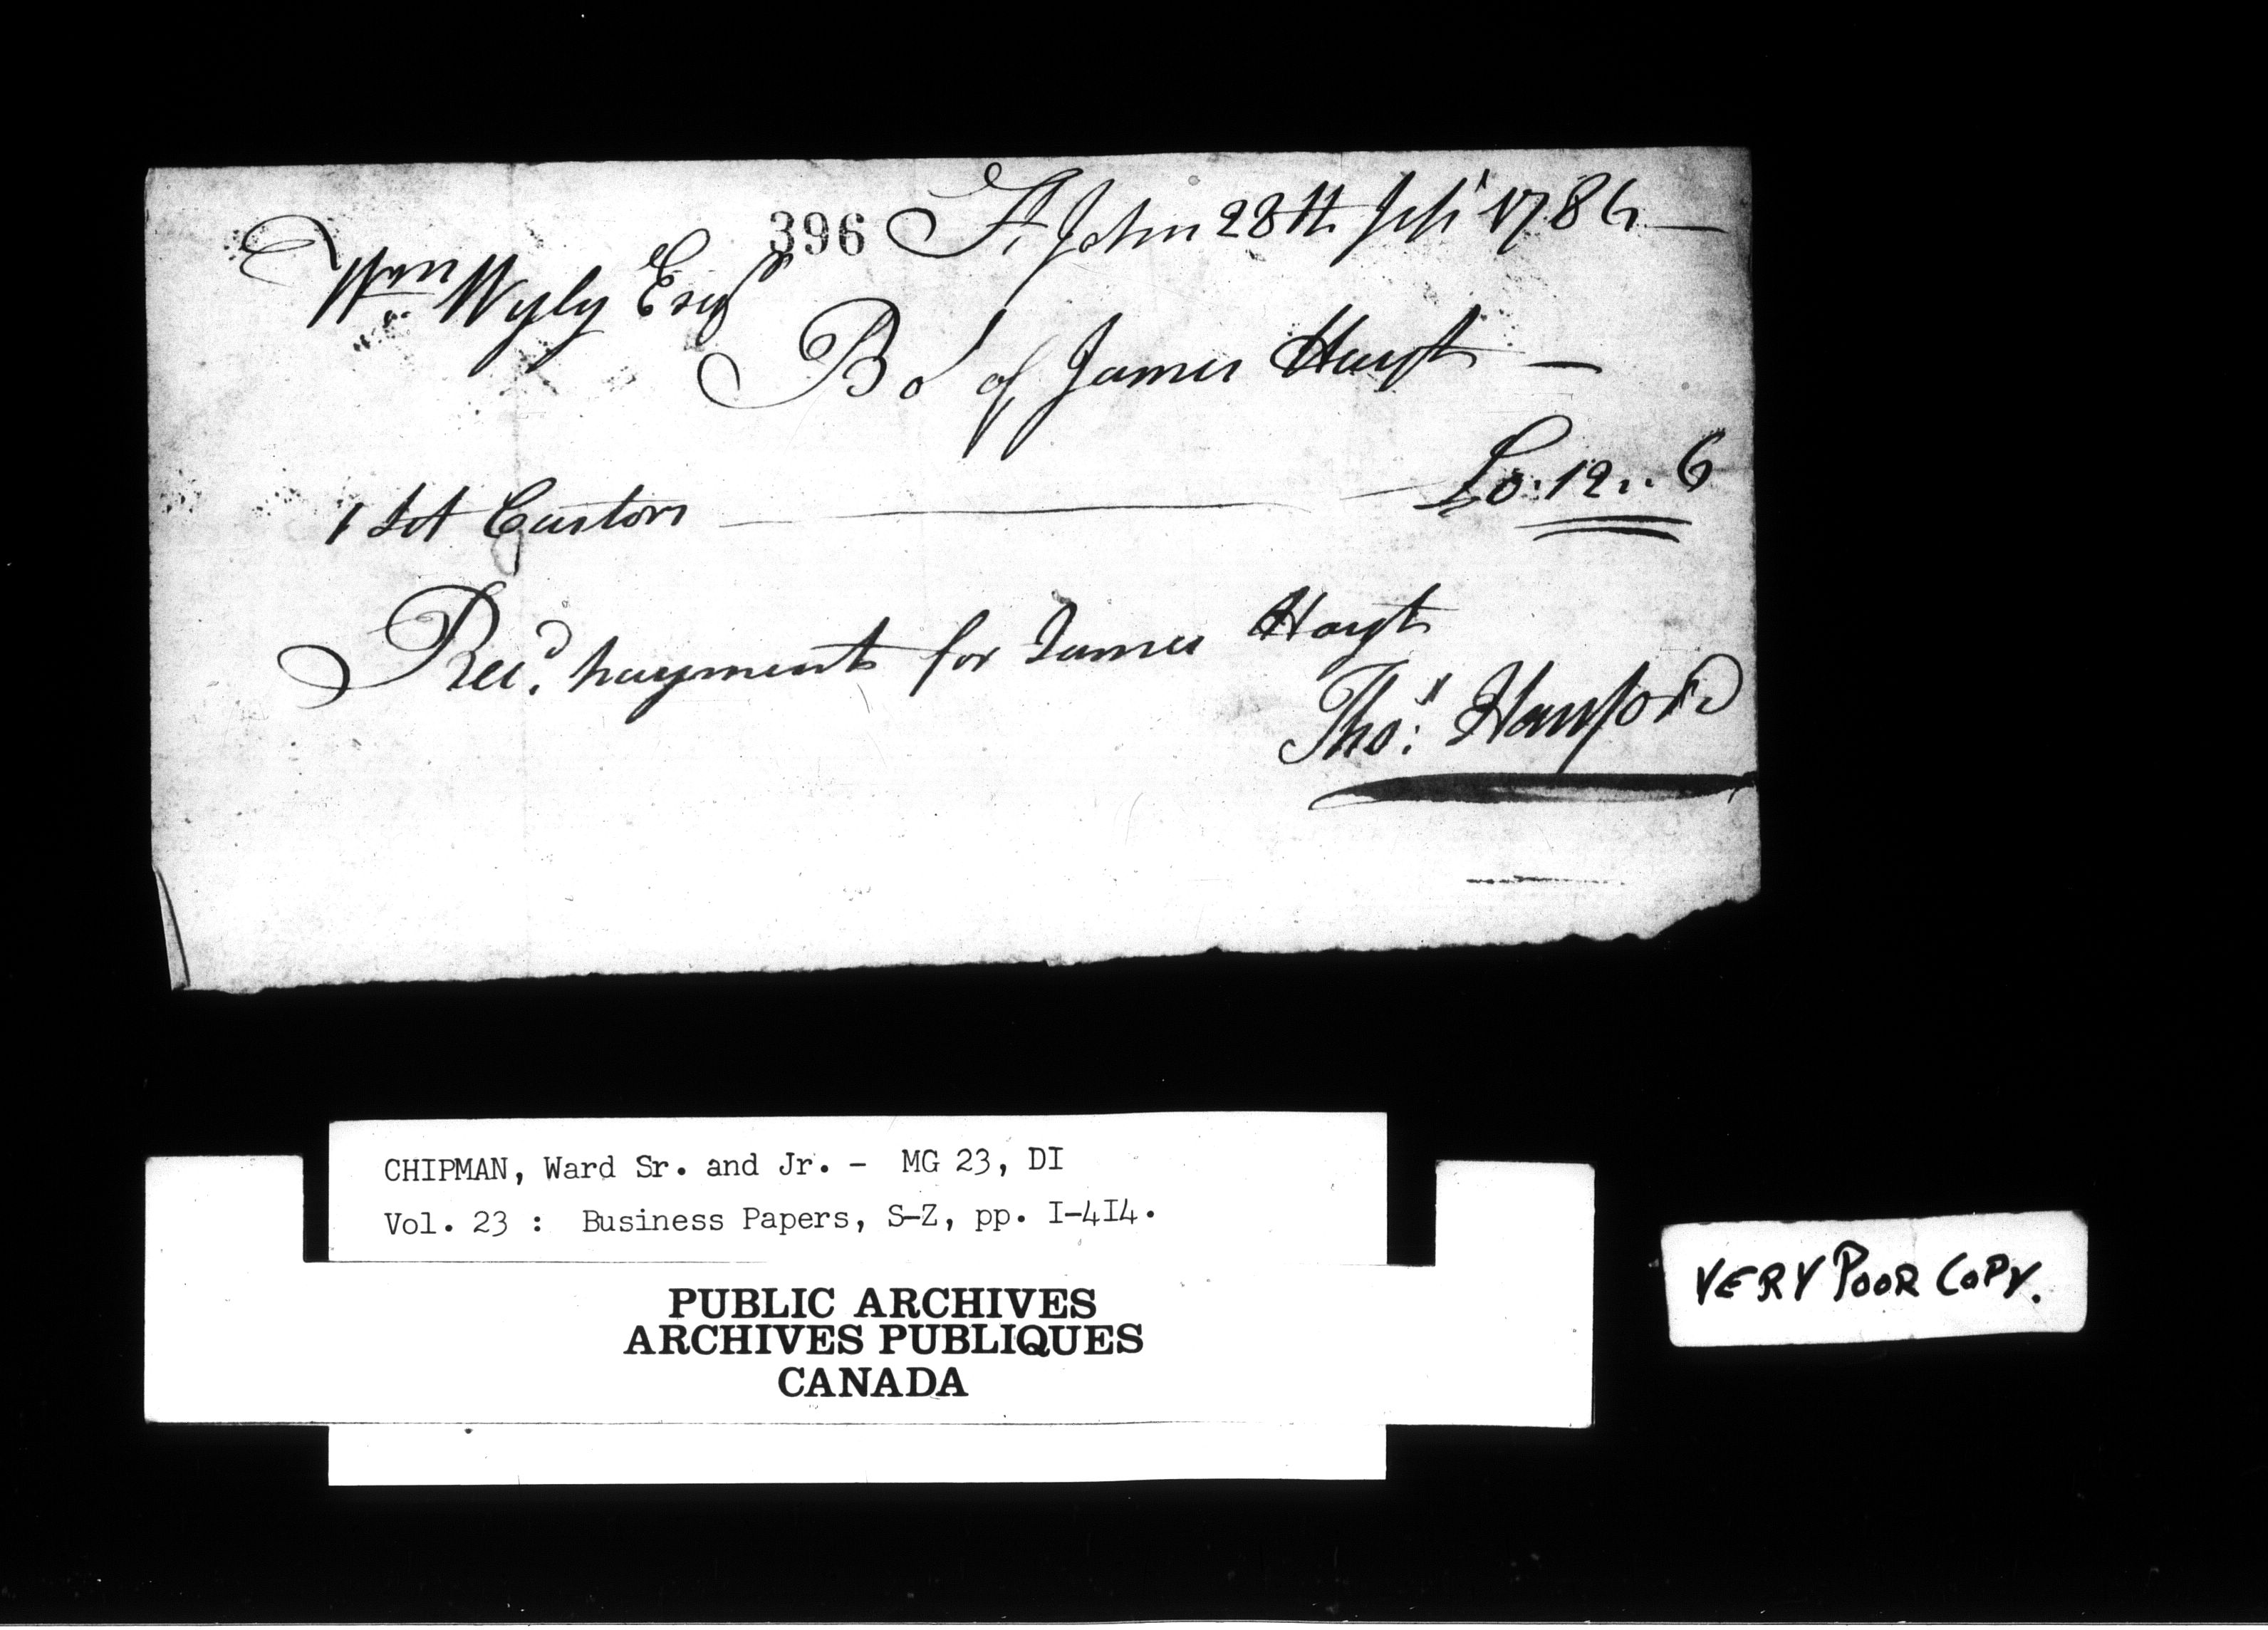 396 St. John 28th Sept 1786
Wm Wyly Esqr
Bot of James Hayt
1 Set Castors £0..12..6
Recd. payment for James Hayt
Thos: Hanford
CHIPMAN, Ward Sr. and Jr. - MG 23, DI
Vol. 23 : Business Papers, S-Z, pp. I-4I4.
PUBLIC ARCHIVES
ARCHIVES PUBLIQUES
CANADA
VERY POOR COPY.